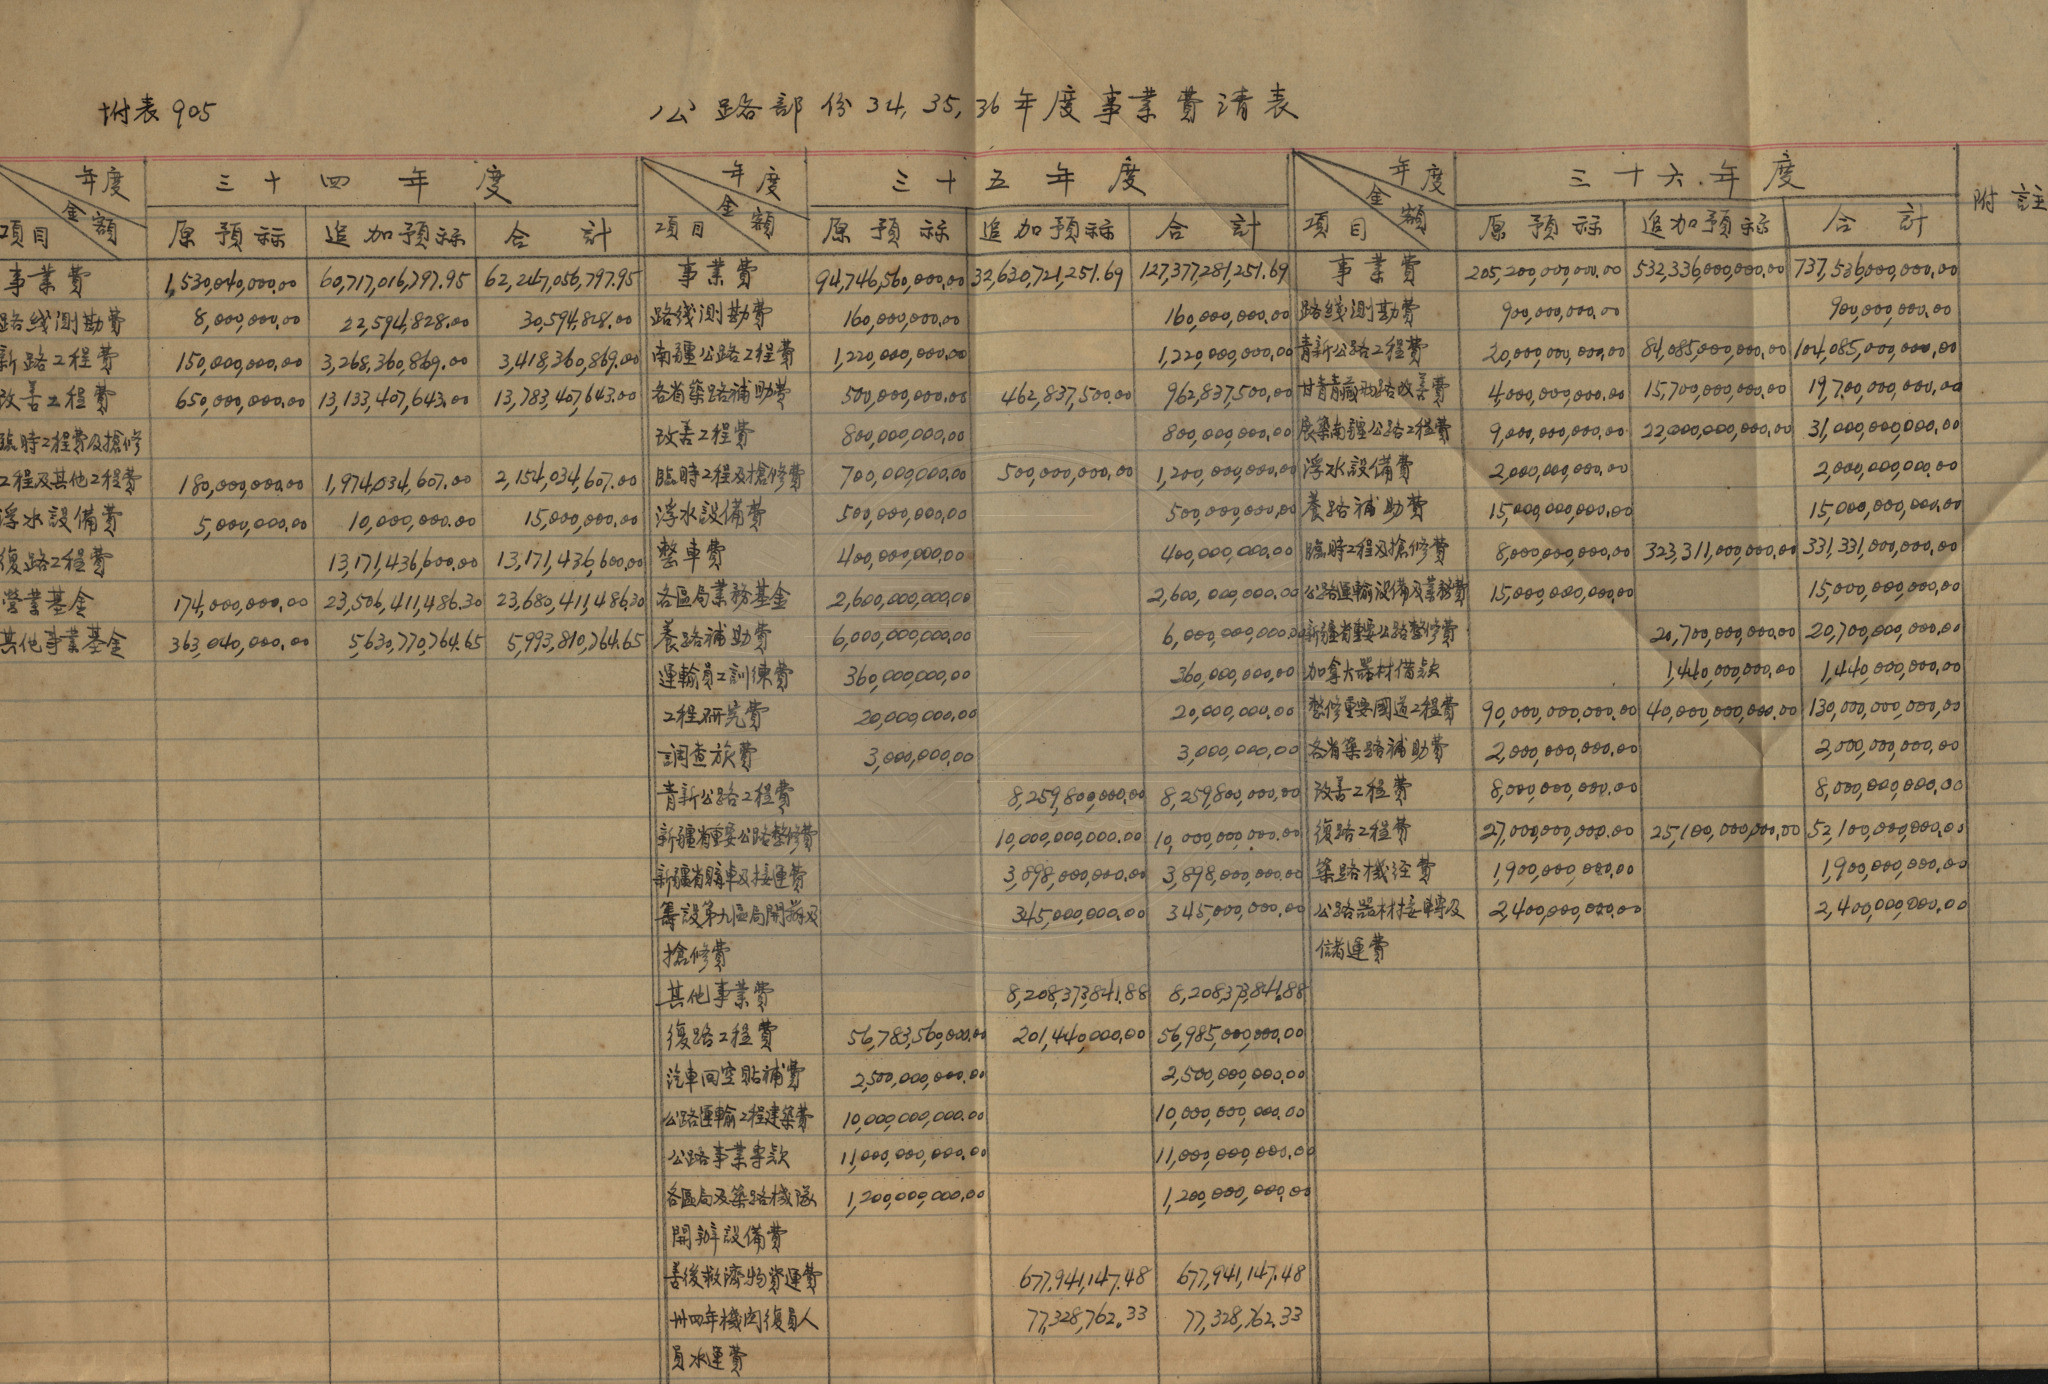 附表905
公路部份34,35,36年度事業費清表
年度 三十四年度 年度 三十五年度 年度 三十六年度 附註
金額 金額 金額
項目 原預祘 追加預祘 合計 項目 原預祘 追加預祘 合計 項目 原預祘 追加預祘 合計
事業費 1,530,040,000.00 60,717,016,797.95 62,247,056,797.95 事業費 94,746,560,000.00 32,630,721,251.69 127,377,281,251.69 事業費 205,200,000,000.00 532,336,000,000.00 737,536,000,000.00
路线測勘費 8,000,000.00 22,594,828.00 30,594,828.00 路线測勘費 160,000,000.00 160,000,000.00 路线測勘費 900,000,000.00 900,000,000.00
新路工程費 150,000,000.00 3,268,360,869.00 3,418,360,869.00 南疆公路工程費 1,220,000,000.00 1,220,000,000.00 青新公路工程費 20,000,000,000.00 84,085,000,000.00 104,085,000,000.00
改善工程費 650,000,000.00 13,133,407,643.00 13,783,407,643.00 各省築路補助費 500,000,000.00 462,837,500.00 962,837,500.00 甘青青藏公路改善費 4,000,000,000.00 15,700,000,000.00 19,700,000,000.00
臨時工程費及搶修 改善工程費 800,000,000.00 800,000,000.00 展築南疆公路工程費 9,000,000,000.00 22,000,000,000.00 31,000,000,000.00
工程及其他工程費 180,000,000.00 1,974,034,607.00 2,154,034,607.00 臨時工程及搶修費 700,000,000.00 500,000,000.00 1,200,000,000.00 浮水設備費 2,000,000,000.00 2,000,000,000.00
浮水設備費 5,000,000.00 10,000,000.00 15,000,000.00 浮水設備費 500,000,000.00 500,000,000.00 養路補助費 15,000,000,000.00 15,000,000,000.00
復路工程費 13,171,436,600.00 13,171,436,600.00 整車費 400,000,000.00 400,000,000.00 臨時工程及搶修費 8,000,000,000.00 323,311,000,000.00 331,331,000,000.00
營業基金 174,000,000.00 23,506,411,486.30 23,680,411,486.30 各區局業務基金 2,600,000,000.00 2,600,000,000.00 公路運輸設備及業務費 15,000,000,000.00 15,000,000,000.00
其他事業基金 363,040,000.00 5,630,770,764.65 5,993,810,764.65 養路補助費 6,000,000,000.00 6,000,000,000.00 新疆省重要公路整修費 20,700,000,000.00 20,700,000,000.00
運輸員工訓練費 360,000,000.00 360,000,000.00 加拿大器材借款 1,440,000,000.00 1,440,000,000.00
工程研究費 20,000,000.00 20,000,000.00 整修重要國道工程費 90,000,000,000.00 40,000,000,000.00 130,000,000,000.00
調查旅費 3,000,000.00 3,000,000.00 各省築路補助費 2,000,000,000.00 2,000,000,000.00
青新公路工程費 8,259,800,000.00 8,259,800,000.00 改善工程費 8,000,000,000.00 8,000,000,000.00
新疆省重要公路整修費 10,000,000,000.00 10,000,000,000.00 復路工程費 27,000,000,000.00 25,100,000,000.00 52,100,000,000.00
新疆省購車及接運費 3,898,000,000.00 3,898,000,000.00 築路機经費 1,900,000,000.00 1,900,000,000.00
籌設第九區局開辦及 345,000,000.00 345,000,000.00 公路器材接轉及 2,400,000,000.00 2,400,000,000.00
搶修費 儲運費
其他事業費 8,208,373,841.88 8,208,373,841.88
復路工程費 56,783,560,000.00 201,440,000.00 56,985,000,000.00
汽車回空貼補費 2,500,000,000.00 2,500,000,000.00
公路運輸工程建築費 10,000,000,000.00 10,000,000,000.00
公路事業專款 11,000,000,000.00 11,000,000,000.00
各區局及築路機隊 1,200,000,000.00 1,200,000,000.00
開辦設備費
善後救濟物資運費 677,941,147.48 677,941,147.48
卅四年機関復員人 77,328,762.33 77,328,762.33
員水運費